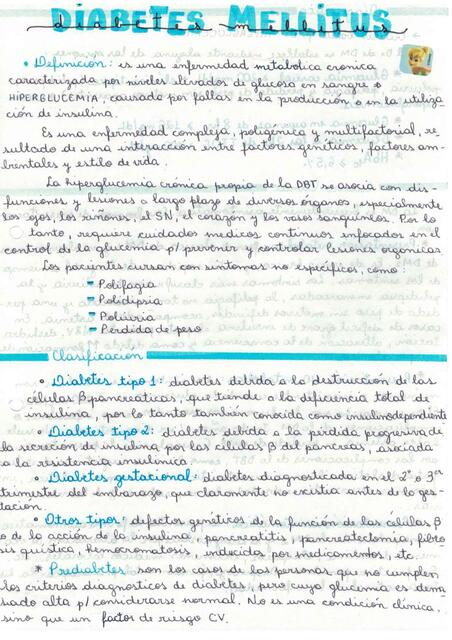 DIABETES MELLITUS
diabetes mellitus
• Definición: es una enfermedad metabólica crónica
caracterizada por niveles elevados de glucosa en sangre o
HIPERGLUCEMIA, causada por fallas en la producción o en la utiliza
ción de insulina.
Es una enfermedad compleja, poligénica y multifactorial, re
sultado de una interacción entre factores genéticos, factores am-
bientales y estilo de vida.
La hiperglucemia crónica propia de la DBT se asocia con dis-
funciones y lesiones a largo plazo de diversos órganos, especialmente
los ojos, los riñones, el SN, el corazón y los vasos sanguíneos. Por lo
tanto, requiere cuidados médicos continuos enfocados en el
control de la glucemia p/ prevenir y controlar lesiones orgánicas
Los pacientes cursan con síntomas no específicos, como:
- Polifagia
- Polidipsia
- Poliuria
- Pérdida de peso
Clasificación
• Diabetes tipo 1: diabetes debida a la destrucción de las
células β pancreaticas, que tiende a la deficiencia total de
insulina, por lo tanto también conocida como insulinodependiente
• Diabetes tipo 2: diabetes debida a la pérdida progresiva de
la secreción de insulina por las células β del páncreas, asociada
a la resistencia insulínica.
• Diabetes gestacional: diabetes diagnosticada en el 2° o 3er
trimestre del embarazo, que claramente no existia antes de la ges-
tación.
• Otros tipos: defectos genéticos de la función de las células β
o de la acción de la insulina, pancreatitis, pancreatectomía, fibro
sis quística, hemocromatosis, inducidas por medicamentos, etc.
* Prediabetes: son los casos de las personas que no cumplen
los criterios diagnosticos de diabetes, pero cuya glucemia es dema
siado alta p/ considerarse normal. No es una condición clínica,
sino que un factor de riesgo CV.